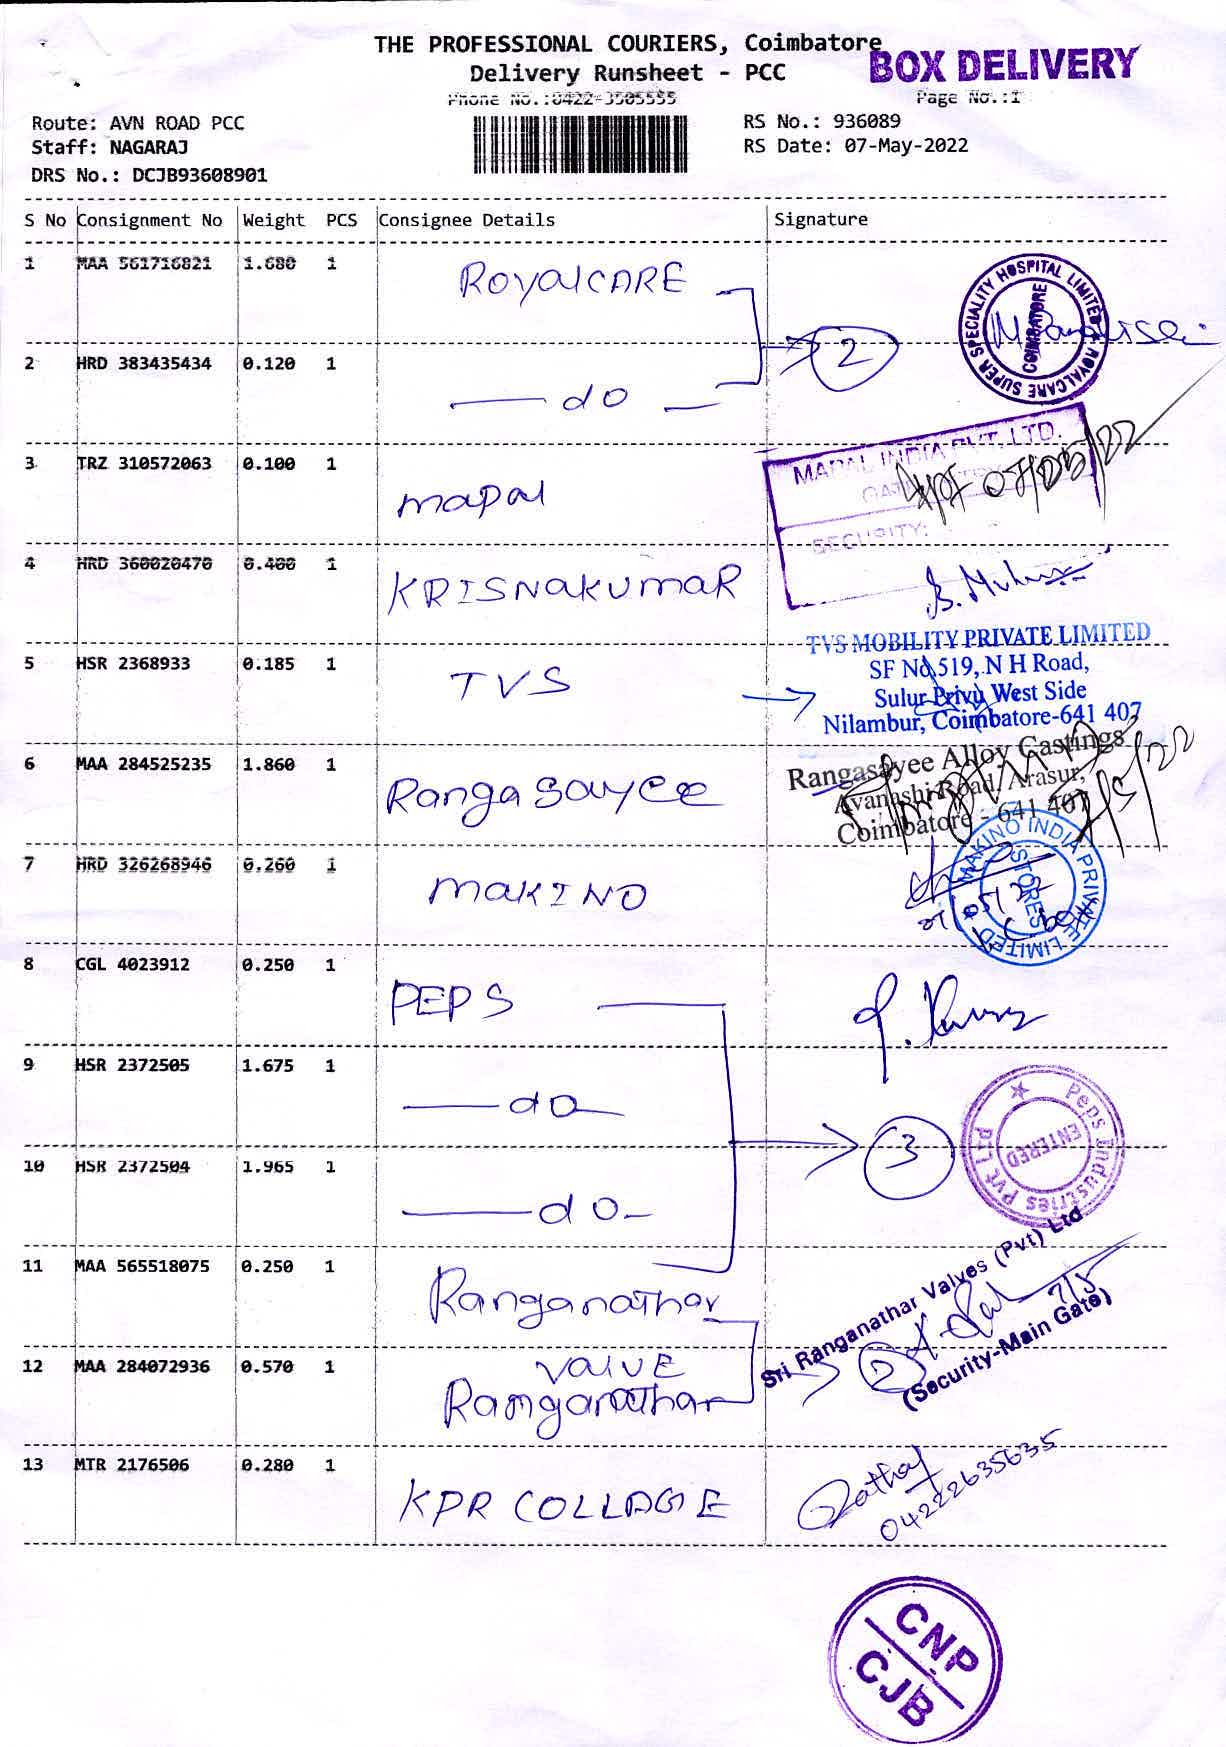 THE PROFESSIONAL COURIERS, Coimbatore
Delivery Runsheet - PCC
BOX DELIVERY
Phone No.:0422-3505555
Page No.:1
Route: AVN ROAD PCC
RS No.: 936089
Staff: NAGARAJ
RS Date: 07-May-2022
DRS No.: DCJB93608901
S No Consignment No Weight PCS Consignee Details Signature
1 MAA 561716821 1.680 1 ROYalCARE
SPECIALITY HOSPITAL LIMITED ROYALCARE SUPER
COIMBATORE
2 HRD 383435434 0.120 1 do
2
3 TRZ 310572063 0.100 1 mapal
MAPAL INDIA PVT. LTD.
SECURITY:
4 HRD 360020470 0.400 1 KRISNAKUMAR
5 HSR 2368933 0.185 1 TVS
TVS MOBILITY PRIVATE LIMITED
SF No.519, N H Road,
Sulur Privu West Side
Nilambur, Coimbatore-641 407
6 MAA 284525235 1.860 1 Ranga sayee
Rangasayee Alloy Castings
Avanashi Road, Arasur,
Coimbatore - 641 407
7 HRD 326268946 0.260 1 MAKINO
MAKINO INDIA PRIVATE LIMITED
STORES
8 CGL 4023912 0.250 1 PEPS
9 HSR 2372505 1.675 1 do
3
Peps Industries Pvt Ltd
ENTERED
10 HSR 2372504 1.965 1 do
11 MAA 565518075 0.250 1 Ranganathar
VALVE
Sri Ranganathar Valves (Pvt) Ltd
7/5
(Security-Main Gate)
12 MAA 284072936 0.570 1 Ranganathar
2
13 MTR 2176506 0.280 1 KPR COLLAGE
04222635635
CNP
CJB